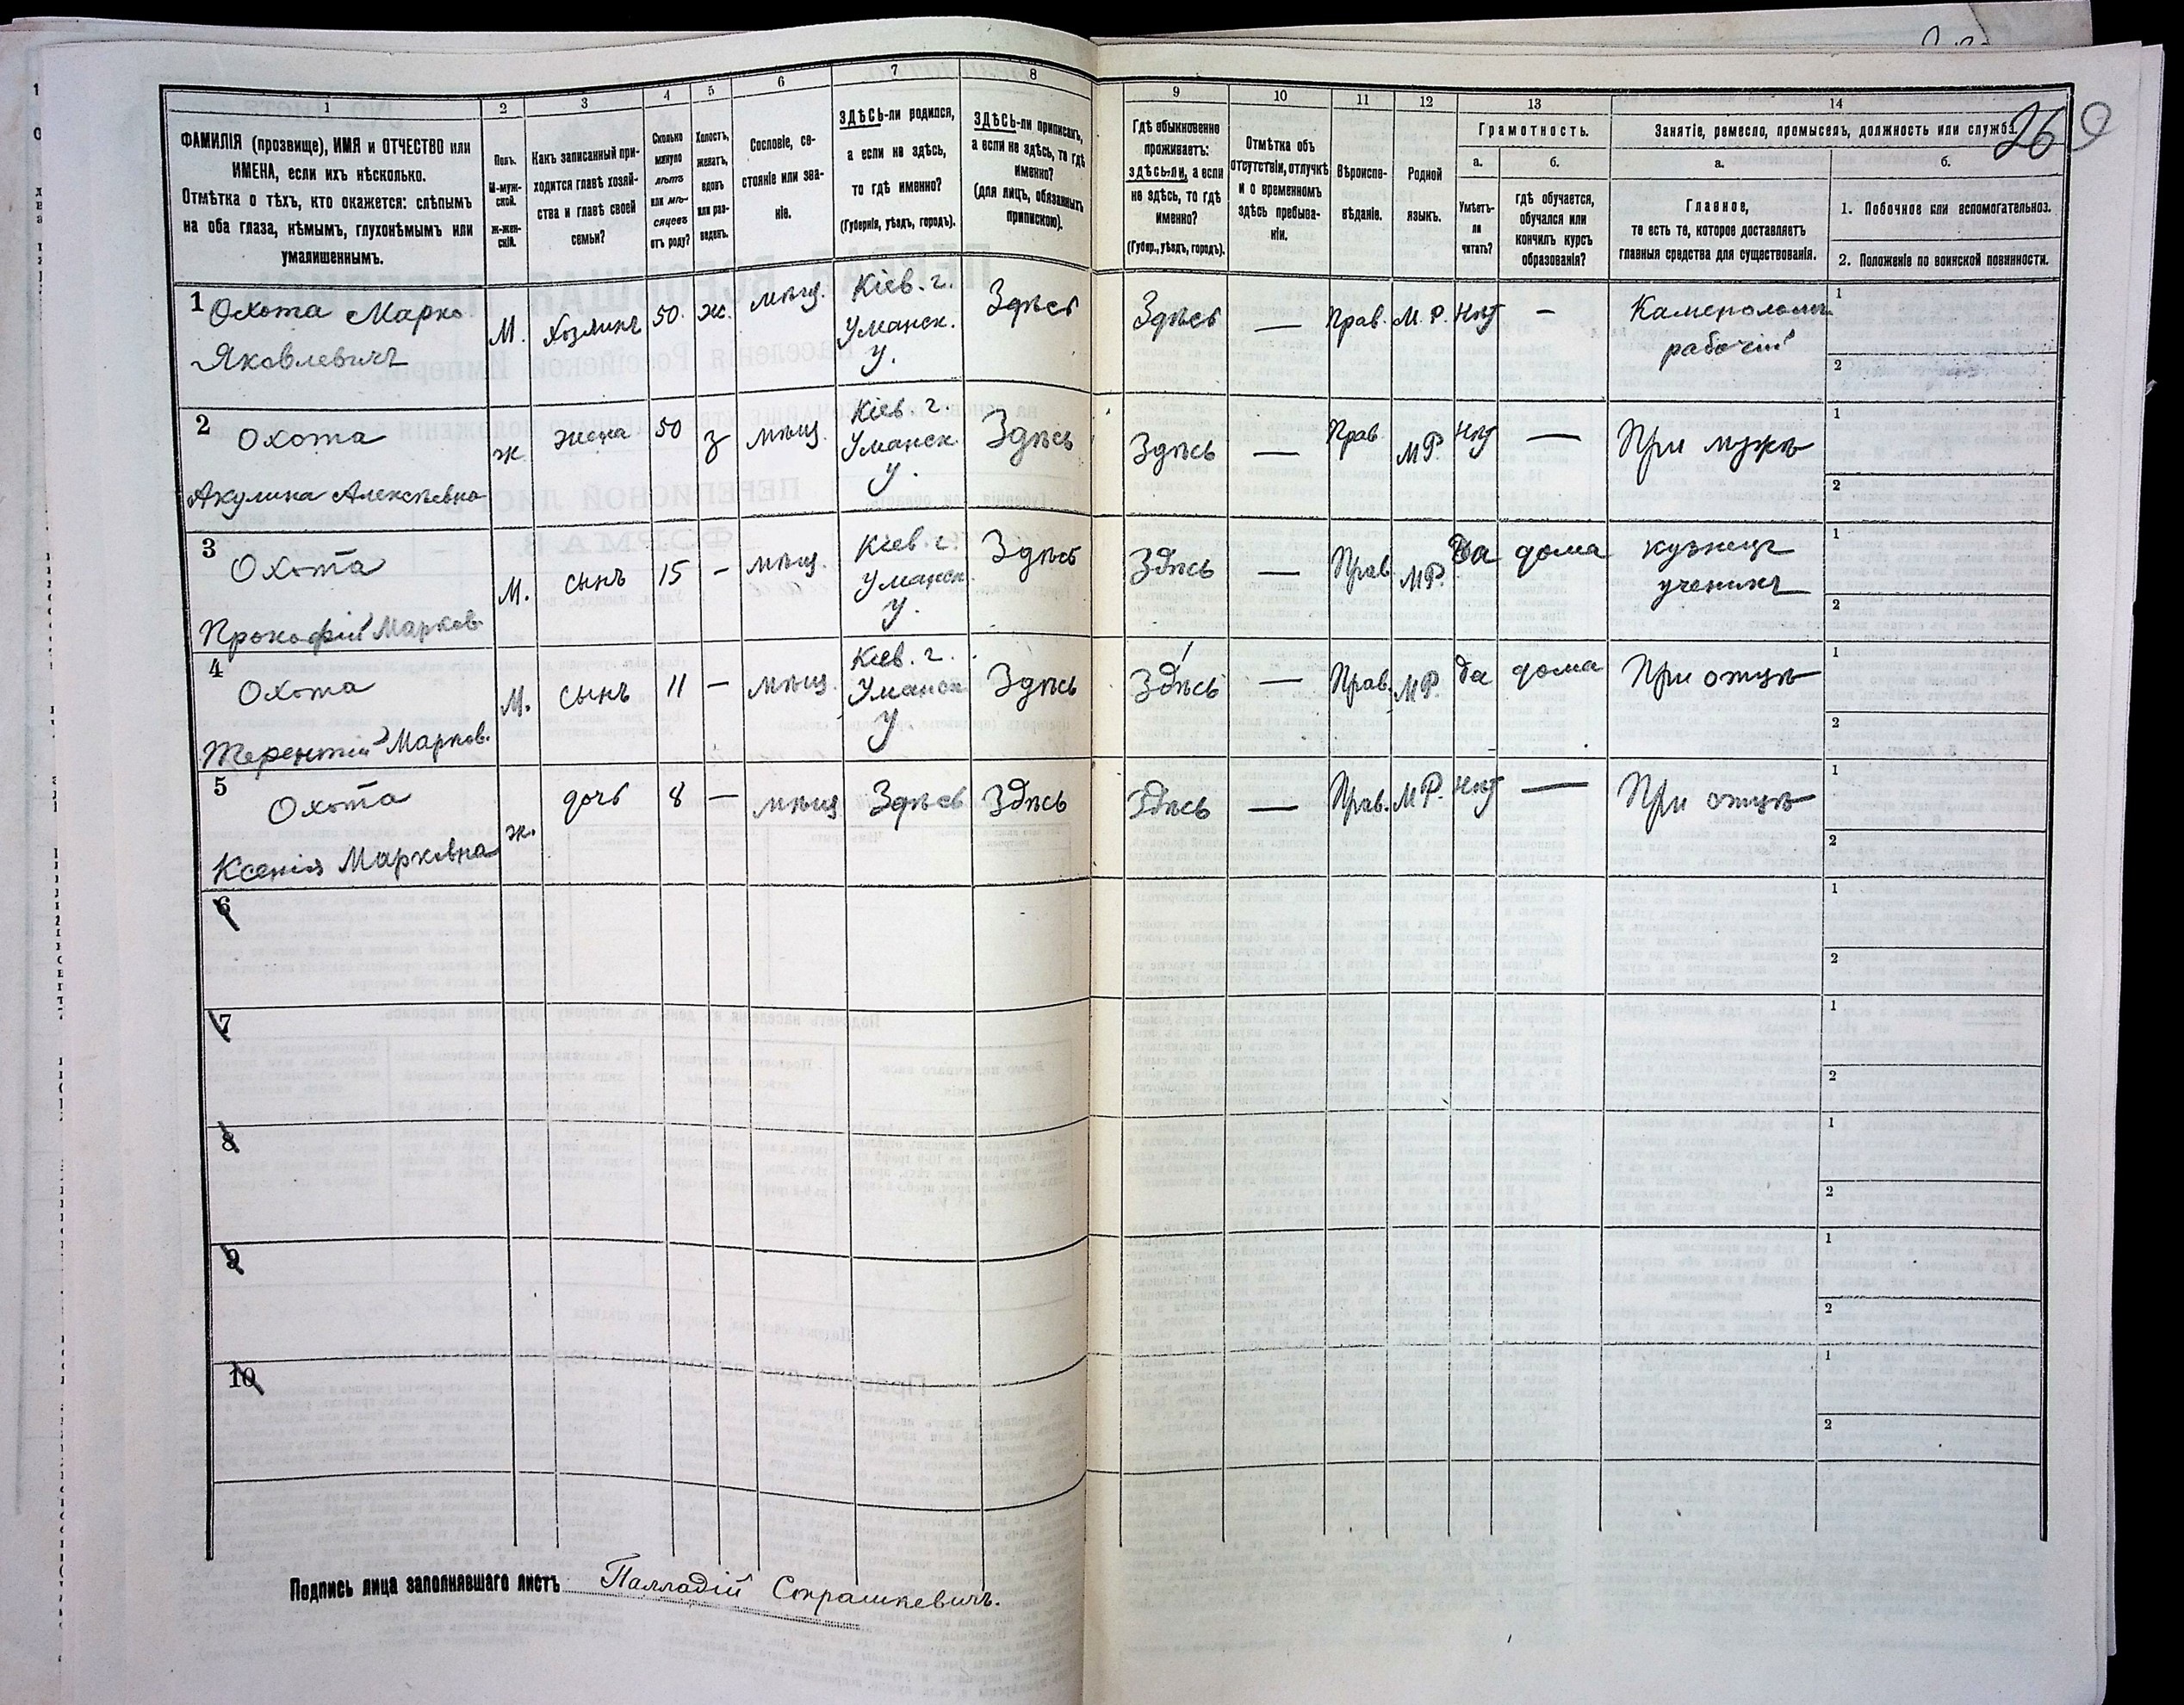 26
1
2
3
4
5
6
7
8
9
10
11
12
13
14
ФАМИЛІЯ (прозвище), ИМЯ и ОТЧЕСТВО или
ИМЕНА, если ихъ нѣсколько.
Отмѣтка о тѣхъ, кто окажется: слѣпымъ
на оба глаза, нѣмымъ, глухонѣмымъ или
умалишеннымъ.
Полъ.
М-муж-
ской.
Ж-жен-
скій.
Какъ записанный при-
ходится главѣ хозяй-
ства и главѣ своей
семьи?
Сколько
минуло
лѣтъ
или мѣ-
сяцевъ
отъ роду?
Холостъ,
женатъ,
вдовъ
или раз-
веденъ.
Сословіе, со-
стояніе или зва-
ніе.
ЗДѢСЬ-ли родился,
а если не здѣсь,
то гдѣ именно?
(Губернія, уѣздъ, городъ).
ЗДѢСЬ-ли приписанъ,
а если не здѣсь, то гдѣ
именно?
(для лицъ, обязанныхъ
припискою).
Гдѣ обыкновенно
проживаетъ:
здѣсь-ли, а если
не здѣсь, то гдѣ
именно?
(Губер., уѣздъ, городъ).
Отмѣтка объ
отсутствіи, отлучкѣ
и о временномъ
здѣсь пребыва-
ніи.
Вѣроиспо-
вѣданіе.
Родной
языкъ.
Грамотность.
а.
б.
Умѣетъ-
ли
читать?
гдѣ обучается,
обучался или
кончилъ курсъ
образованія?
Занятіе, ремесло, промыселъ, должность или служба.
а.
б.
Главное,
то есть то, которое доставляетъ
главныя средства для существованія.
1. Побочное или вспомогательное.
2. Положеніе по воинской повинности.
1 Охота Марко
Яковлевичъ
М. Хозяинъ 50. ж. мѣщ.
Кіев. г.
Уманск.
у.
Здѣсь Здѣсь — Прав. М.Р. Нѣт —
Каменоломн.
рабочій
1
2
2 Охота
Акулина Алексѣевна
ж жена 50 з мѣщ
Кіев. г.
Уманск
у.
Здѣсь Здѣсь — Прав МР. Нѣт — При мужѣ
1
2
3 Охота
Прокофій Марков.
М. сынъ 15 — мѣщ.
Кіев г.
Уманск.
у.
Здѣсь Здѣсь — Прав МР. Да дома
кузнецъ
ученикъ
1
2
4 Охота
Терентій Марков.
М. сынъ 11 — мѣщ.
Кіев. г.
Уманск
у
Здѣсь Здѣсь — Прав. МР. да дома При отцѣ
1
2
5 Охота
Ксенія Марковна
ж. дочь 8 — мѣщ Здѣсь Здѣсь Здѣсь — Прав. МР. Нѣт — При отцѣ
1
2
6
1
2
7
1
2
8
1
2
9
1
2
10
1
2
Подпись лица заполнявшаго листъ Палладій Сокрашкевичъ.